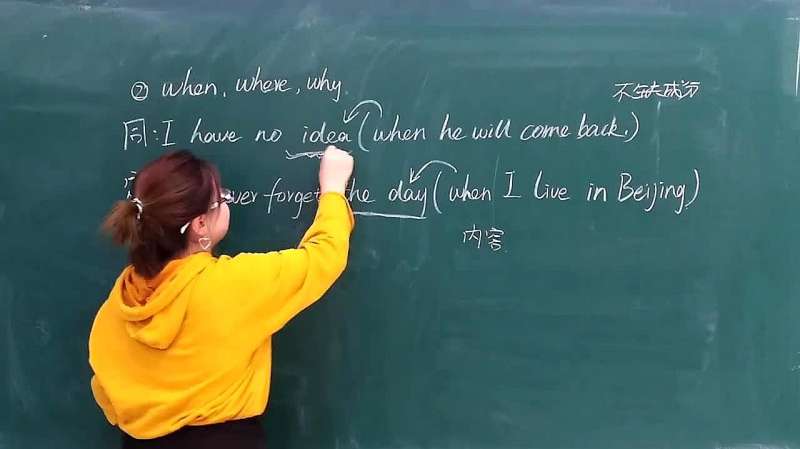 ② when, where, why. 不缺成分
同: I have no idea (when he will come back.)
forget the day (when I live in Beijing)
内容